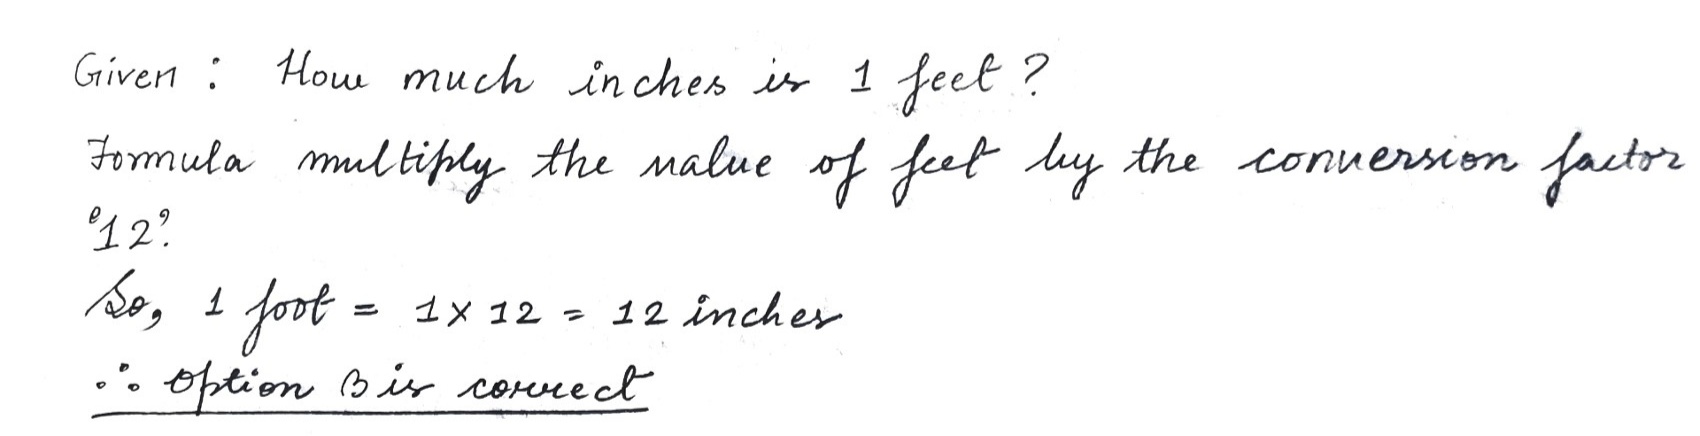 Given : How much inches is 1 feet ?
Formula multiply the value of feet by the conversion factor
'12'.
So, 1 foot = 1 x 12 = 12 inches
∴ Option B is correct